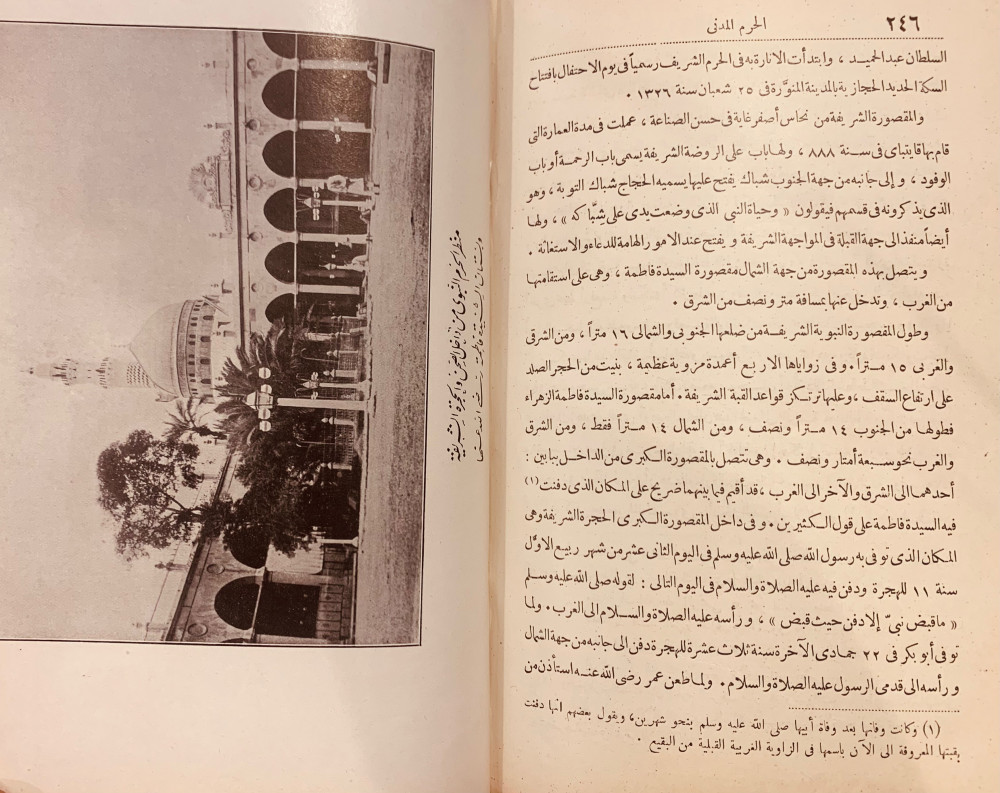 ٢٤٦
الحرم المدنى
السلطان عبد الحميد ، وابتدأت الانارة به فى الحرم الشريف رسمياً فى يوم الاحتفال بافتتاح
السكة الحديد الحجازية بالمدينة المنوَّرة فى ٢٥ شعبان سنة ١٣٢٦ .
والمقصورة الشريفة من نحاس أصفر غاية فى حسن الصناعة ، عملت فى مدة العمارة التى
قام بها قايتباى فى سنة ٨٨٨ ، ولها باب على الروضة الشريفة يسمى باب الرحمة أو باب
الوفود ، وإلى جانبه من جهة الجنوب شباك يفتح عليها يسميه الحجاج شباك التوبة ، وهو
الذى يذكرونه فى قسمهم فيقولون « وحياة النبى الذى وضعت يدى على شبَّاكه » ، ولها
أيضاً منفذ الى جهة القبلة فى المواجهة الشريفة ويفتح عند الامور الهامة للدعاء والاستغاثة .
ويتصل بهذه المقصورة من جهة الشمال مقصورة السيدة فاطمة ، وهى على استقامتها
من الغرب ، وتدخل عنها بمسافة متر ونصف من الشرق .
وطول المقصورة النبوية الشريفة من ضلعها الجنوبى والشمالى ١٦ متراً ، ومن الشرقى
والغربى ١٥ متراً . وفى زواياها الاربع أعمدة مزوية عظيمة ، بنيت من الحجر الصلد
على ارتفاع السقف ، وعليها ترتكز قواعد القبة الشريفة . أما مقصورة السيدة فاطمة الزهراء
فطولها من الجنوب ١٤ متراً ونصف ، ومن الشمال ١٤ متراً فقط ، ومن الشرق
والغرب نحو سبعة أمتار ونصف . وهى تتصل بالمقصورة الكبرى من الداخل ببابين :
أحدهما الى الشرق والآخر الى الغرب ، قد أقيم فيما بينهما ضريح على المكان الذى دفنت (١)
فيه السيدة فاطمة على قول الكثيرين . وفى داخل المقصورة الكبرى الحجرة الشريفة وهى
المكان الذى توفى به رسول الله صلى الله عليه وسلم فى اليوم الثانى عشر من شهر ربيع الأوَّل
سنة ١١ للهجرة ودفن فيه عليه الصلاة والسلام فى اليوم التالى : لقوله صلى الله عليه وسلم
« ما قبض نبىّ إلا دفن حيث قبض » ، ورأسه عليه الصلاة والسلام الى الغرب . ولما
توفى أبو بكر فى ٢٢ جمادى الآخرة سنة ثلاث عشرة للهجرة دفن الى جانبه من جهة الشمال
ورأسه الى قدمى الرسول عليه الصلاة والسلام . ولما طعن عمر رضى الله عنه استأذن من
(١) وكانت وفاتها بعد وفاة أبيها صلى الله عليه وسلم بنحو شهرين، ويقول بعضهم انها دفنت
بقبتها المعروفة الى الآن باسمها فى الزاوية الغربية القبلية من البقيع .
منظر الحرم النبوى من داخل الصحن والحجرة الشريفة
وبستان السيدة فاطمة رضى الله عنها